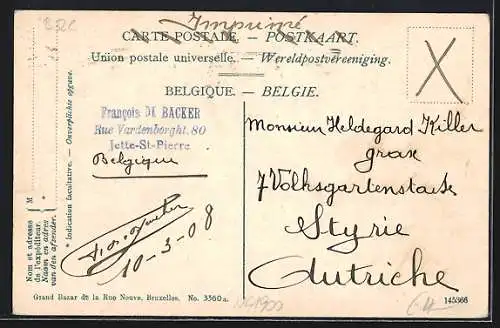 Imprimé
CARTE POSTALE. — POSTKAART.
Union postale universelle. — Wereldpostvereeniging.
BELGIQUE. — BELGIE.
François DE BACKER
Rue Vandenborght, 80
Jette-St-Pierre
Belgique
10-3-08
Monsieur Heldegard Killer
graz
7 Volksgartenstrasse
Styrie
Autriche
M
Nom et adresse
de l'expéditeur.
Naam en adres
van den afzender.
* Indication facultative. — Onverplichte opgave.
Grand Bazar de la Rue Neuve, Bruxelles. No. 3360a.
145366